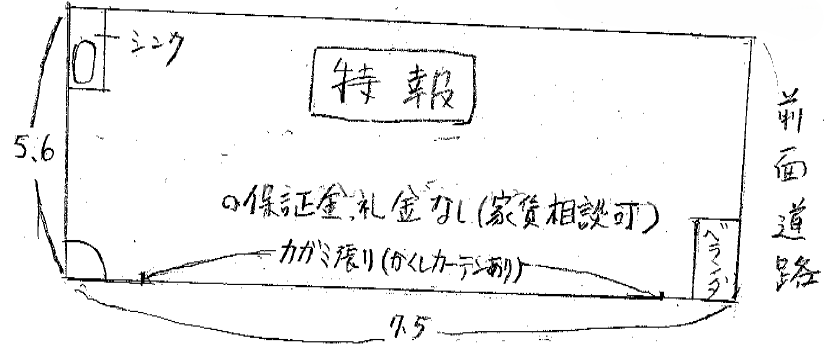 シンク
特報
5.6
前面道路
○保証金、礼金なし(家賃相談可)
カガミ張り(かくしカーテンあり)
ベランダ
7.5